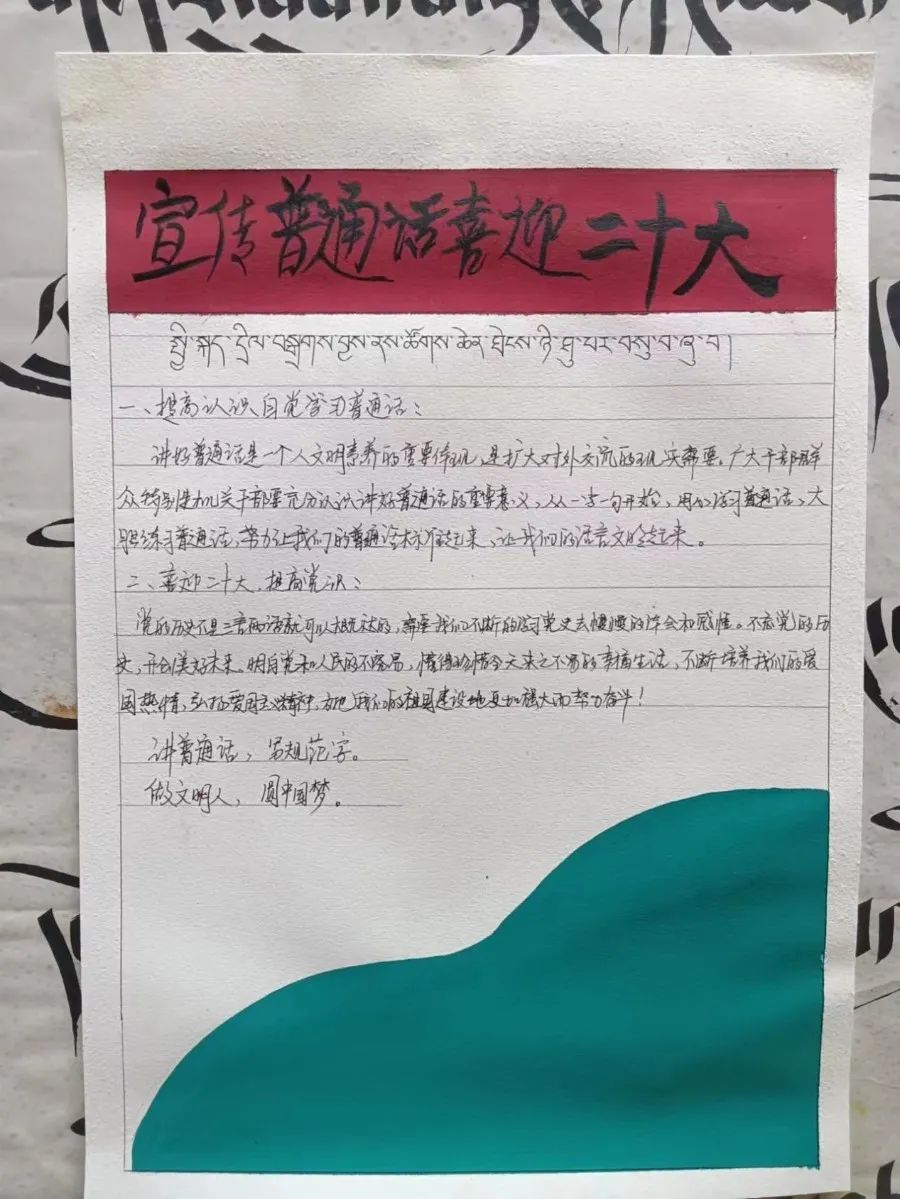 宣传普通话喜迎二十大
སྤྱི་སྐད་དྲིལ་བསྒྲགས་བྱས་ནས་ཚོགས་ཆེན་ཐེངས་ཉི་ཤུ་པར་བསུ་བ་ཞུ་བ།
一、提高认识自觉学习普通话：
讲好普通话是一个人文明素养的重要体现，是扩大对外交流的现实需要。广大干部群
众特别是机关干部要充分认识讲好普通话的重要意义，从一字一句开始，用心学习普通话、大
胆练习普通话，努力让我们的普通话标准起来，让我们的语言文明起来。
二、喜迎二十大，提高党识：
党的历史不是三言两语就可以概括的，需要我们不断的学习党史去慢慢的体会和感悟。不忘党的历
史，开创美好未来。明白党和人民的不容易，懂得珍惜今天来之不易的幸福生活，不断培养我们的爱
国热情，弘扬爱国主义精神，为把我们的祖国建设地更加强大而努力奋斗！
讲普通话，写规范字。
做文明人，圆中国梦。